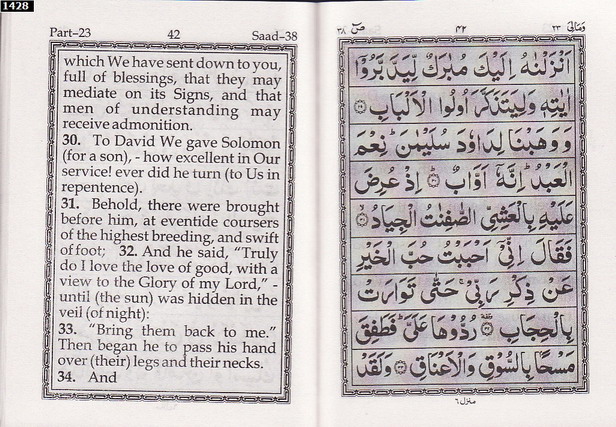 1428
Part–23 42 Saad–38
which We have sent down to you,
full of blessings, that they may
mediate on its Signs, and that
men of understanding may
receive admonition.
30. To David We gave Solomon
(for a son), - how excellent in Our
service! ever did he turn (to Us in
repentence).
31. Behold, there were brought
before him, at eventide coursers
of the highest breeding, and swift
of foot; 32. And he said, “Truly
do I love the love of good, with a
view to the Glory of my Lord,” -
until (the sun) was hidden in the
veil (of night):
33. “Bring them back to me.”
Then began he to pass his hand
over (their) legs and their necks.
34. And
وَمَالِیَ ٢٣ ٤٢ صٓ ٣٨
اَنْزَلْنٰهُ اِلَيْكَ مُبٰرَكٌ لِّيَدَّبَّرُوْٓا
اٰيٰتِهٖ وَلِيَتَذَكَّرَ اُولُوا الْاَلْبَابِ ﴿٢٩﴾
وَوَهَبْنَا لِدَاوٗدَ سُلَيْمٰنَ ؕ نِعْمَ
الْعَبْدُ ؕ اِنَّهٗٓ اَوَّابٌ ﴿٣٠﴾ اِذْ عُرِضَ
عَلَيْهِ بِالْعَشِىِّ الصّٰفِنٰتُ الْجِيَادُ ﴿٣١﴾
فَقَالَ اِنِّىْٓ اَحْبَبْتُ حُبَّ الْخَيْرِ
عَنْ ذِكْرِ رَبِّىْ ۚ حَتّٰى تَوَارَتْ
بِالْحِجَابِ ﴿٣٢﴾ رُدُّوْهَا عَلَىَّ ؕ فَطَفِقَ
مَسْحًۢا بِالسُّوْقِ وَالْاَعْنَاقِ ﴿٣٣﴾ وَلَقَدْ
منزل ٦